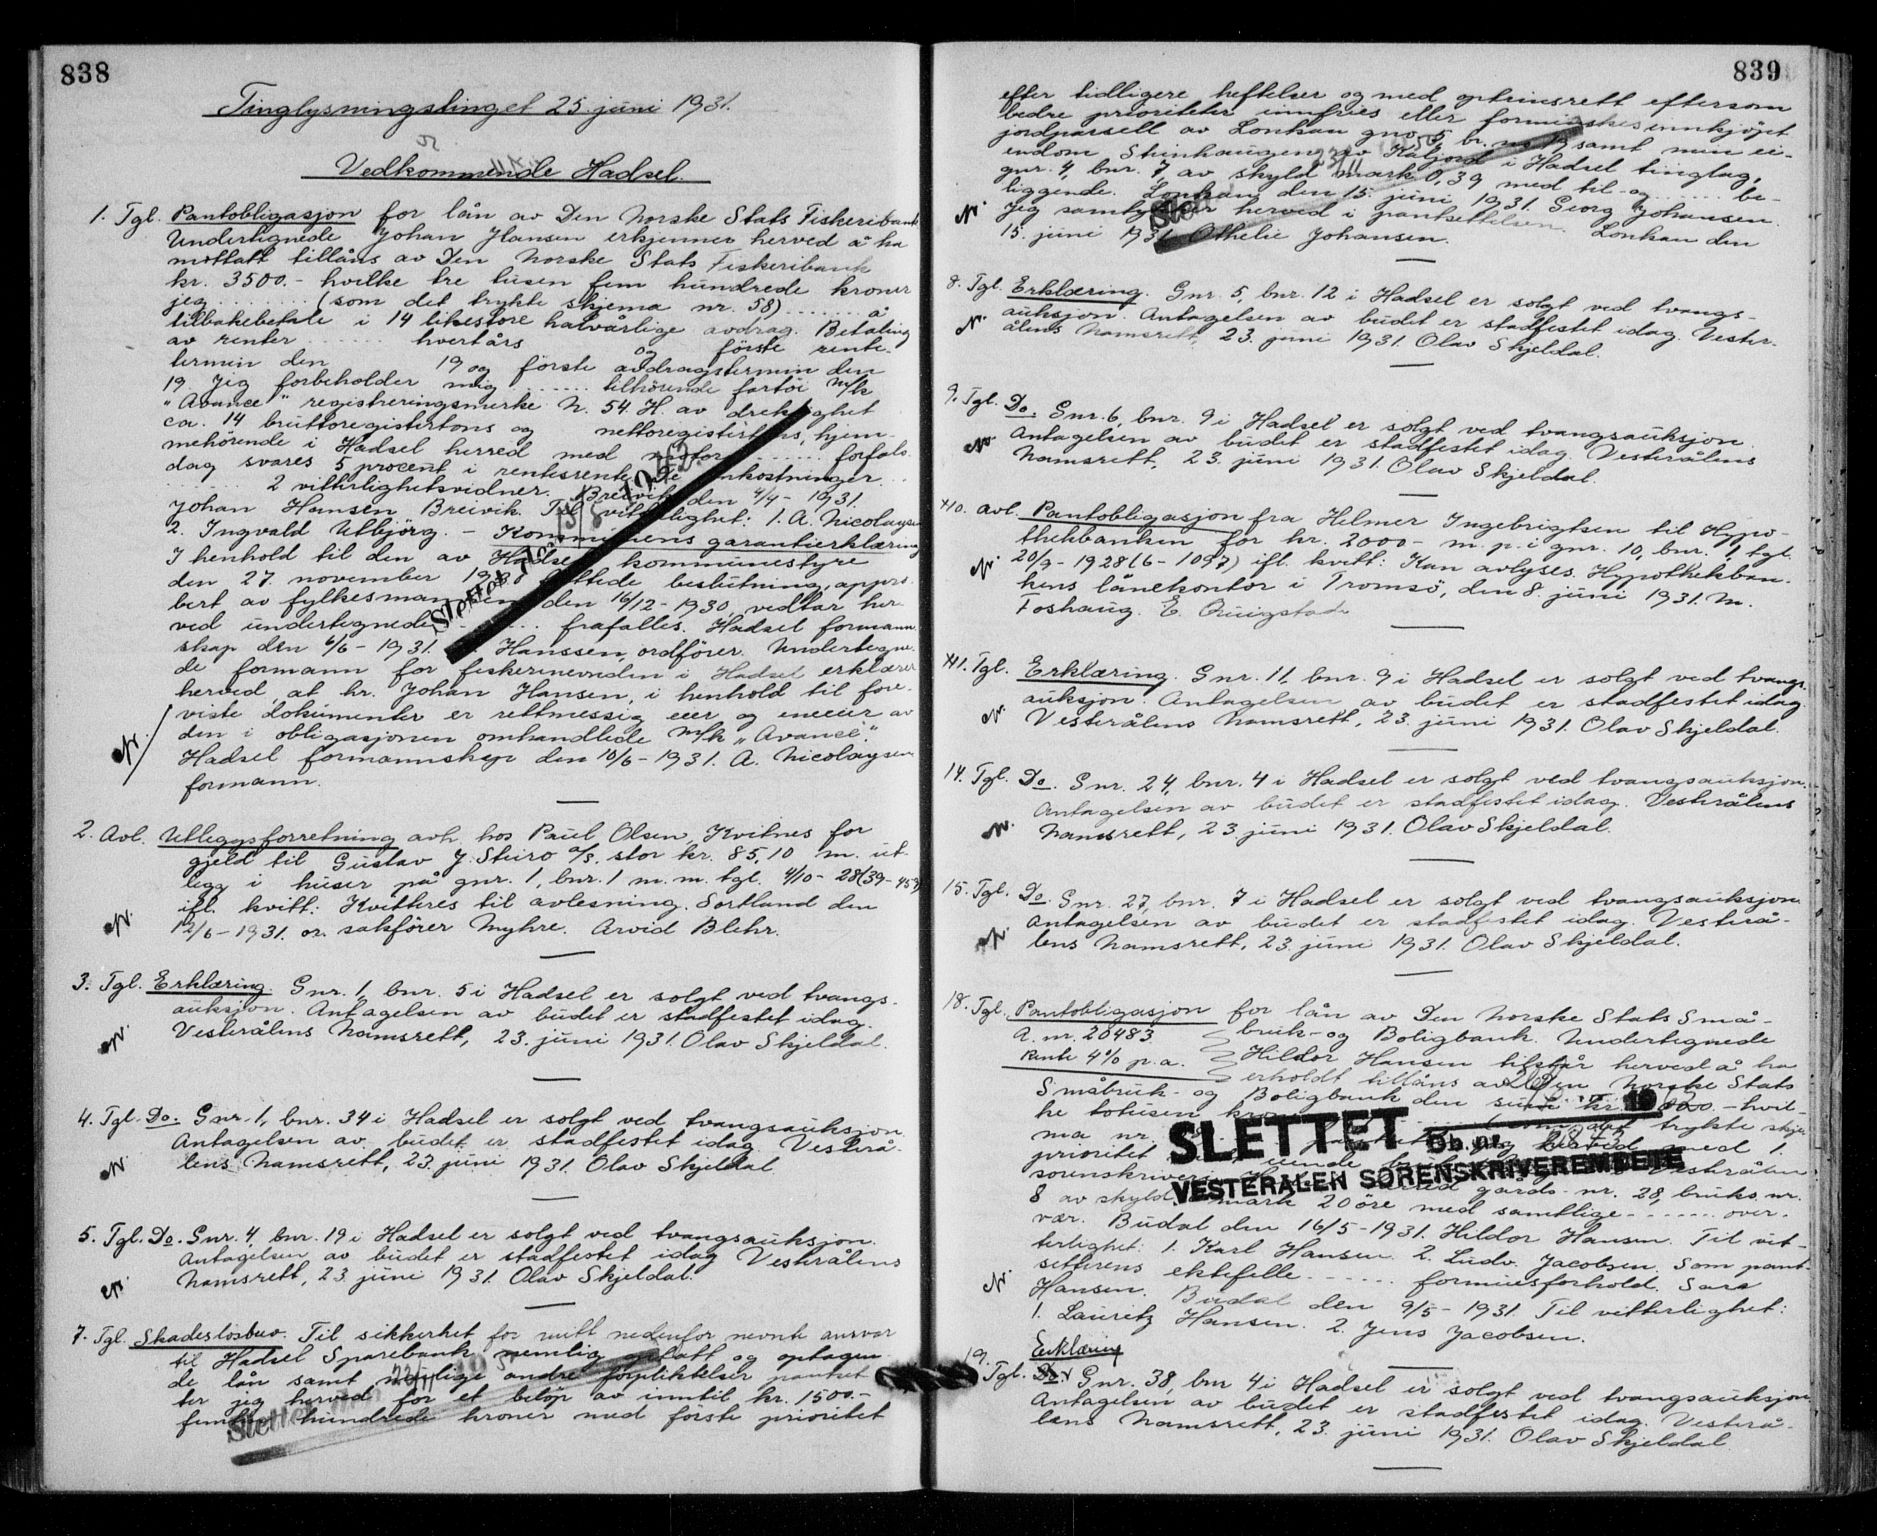 838
Tinglysningstinget 25. juni 1931.
Vedkommende Hadsel.
1. Tgl. Pantobligasjon for lån av Den Norske Stats Fiskeribank
Undertegnede Johan Hansen erkjenner herved å ha
mottatt tillåns av Den Norske Stats Fiskeribank
kr. 3500.- hvilke tre tusen fem hundrede kroner
jeg ........ (som det trykte skjema nr. 58) ........ å
tilbakebetale i 14 likestore halvårlige avdrag. Betaling
av renter ...... hvertårs og første rente-
termin den 19 og første avdragstermin den
19 Jeg forbeholder mig ...... tilhørende fartöi m/k
"Avance" registreringsmerke N. 54. H. av drektighet
ca. 14 bruttoregistertons og nettoregistertons, hjem-
mehörende i Hadsel herred med motor ...... forfals
dag svares 5 procent i rentesrente omkostninger ...
...... 2 vitterlighetsvidner. Breivik den 4/4 - 1931.
Johan Hansen Breivik. Til vitterlighet: 1. A. Nicolaysen
2. Ingvald Utbjörg. - Kommunens garantierklæring
I henhold til den av Hadsel kommunestyre
den 27. november 1930 fattede beslutning, appro-
bert av fylkesmannen den 16/12 - 1930, vedtar her-
ved undertegnede ...... frafalles. Hadsel formann-
skap den 6/6 - 1931. Hanssen, ordförer. Undertegne-
de formann for fiskerinevnden i Hadsel erklærer
herved at hr. Johan Hansen, i henhold til fore-
viste dokumenter er rettmessig eier og eneeier av
den i obligasjonen omhandlede m/k "Avance".
Hadsel formannskap den 10/6 - 1931. A. Nicolaysen
formann.
2. Avl. Utleggsforretning avh. hos Paul Olsen, Kvitnes for
gjeld til Gustav J. Steiro a/s. stor kr. 85,10 m. ut-
legg i huser på gnr. 1, bnr. 1 m. m. tgl. 4/10 - 28 (39 - 453)
ifl. kvitt: Kvitteres til avlesning. Sortland den
12/6 - 1931. or. sakförer Myhre. Arvid Blehr.
3. Tgl. Erklæring. Gnr. 1, bnr. 5 i Hadsel er solgt ved tvangs-
auksjon. Antagelsen av budet er stadfestet idag.
Vesterålens Namsrett, 23. juni 1931. Olav Skjeldal.
4. Tgl. Do. Gnr. 1, bnr. 34 i Hadsel er solgt ved tvangsauksjon.
Antagelsen av budet er stadfestet idag. Vesterå-
lens Namsrett, 23. juni 1931. Olav Skjeldal
5. Tgl. Do. Gnr. 4, bnr. 19 i Hadsel er solgt ved tvangsauksjon.
Antagelsen av budet er stadfestet idag. Vesterålens
Namsrett, 23. juni 1931. Olav Skjeldal.
7. Tgl. Skadeslösbrev. Til sikkerhet for mitt nedenfor nevnte ansvar
til Hadsel Sparebank nemlig optatt og optagen-
de lån samt mulige andre forpliktelser pantset-
ter jeg herved for et belöp av inntil kr. 1500.-
femten hundrede kroner med förste prioritet
839
efter tidligere heftelser og med optrinsrett eftersom
bedre prioriteter innfries eller forminskes innkjöpt
jordparsell av Lonkan gnr. 5 br. nr. 19 samt min ei-
endom Steinhaugen av Kaljord i Hadsel tinglag,
gnr. 4, bnr. 7, av skyld mark 0,39 med til- og ...... be-
liggende. Lonkan den 15. juni 1931. Georg Johansen.
Jeg samtykker herved i pantsettelsen. Lonkan den
15. juni 1931. Othelie Johansen.
8. Tgl. Erklæring. Gnr. 5, bnr. 12 i Hadsel er solgt ved tvangs-
auksjon. Antagelsen av budet er stadfestet idag. Vester-
ålens Namsrett, 23. juni 1931. Olav Skjeldal.
9. Tgl. Do. Gnr. 6, bnr. 9 i Hadsel er solgt ved tvangsauksjon.
Antagelsen av budet er stadfestet idag. Vesterålens
Namsrett, 23. juni 1931. Olav Skjeldal.
10. Avl. Pantobligasjon fra Helmer Ingebrigtsen til Hypo-
thekbanken for kr. 2000.- m. p. i gnr. 10, bnr. 1, tgl.
20/9 - 1928 (6 - 1097) ifl. kvitt: Kan avlyses. Hypothekban-
kens lånekontor i Tromsö, den 8. juni 1931. M.
Foshaug. E.
11. Tgl. Erklæring. Gnr. 11, bnr. 9 i Hadsel er solgt ved tvangs-
auksjon. Antagelsen av budet er stadfestet idag.
Vesterålens Namsrett, 23. juni 1931. Olav Skjeldal.
14. Tgl. Do. Gnr. 24, bnr. 4 i Hadsel er solgt ved tvangsauksjon.
Antagelsen av budet er stadfestet idag. Vesterålens
Namsrett, 23. juni 1931. Olav Skjeldal.
15. Tgl. Do. Gnr. 27, bnr. 7 i Hadsel er solgt ved tvangsauksjon.
Antagelsen av budet er stadfestet idag. Vesterå-
lens Namsrett, 23. juni 1931. Olav Skjeldal.
18. Tgl. Pantobligasjon for lån av Den Norske Stats Små-
A. nr. 20483 bruk- og Boligbank. Undertegnede
Rente 4% p. a. Hildor Hansen tilstår herved å ha
erholdt tillåns av Den Norske Stats
Småbruk- og Boligbank den sum kr. - hvil-
ke totusen trykte skje-
ma nr. med 1.
prioritet
SLETTET Db.nr.
VESTERÅLEN SORENSKRIVEREMBETE
8 av skyld mark 20 öre med samtlige ........ over-
vær. Budal den 16/5 - 1931. Hildor Hansen. Til vit-
terlighet: 1. Karl Hansen. 2. Ludv. Jacobsen. Som pant-
setterens ektefelle ...... formuesforhold. Sara
Hansen. Budal den 9/5 - 1931. Til vitterlighet:
1. Lauritz Hansen. 2. Jens Jacobsen.
Erklæring
19. Tgl. Do. Gnr. 38, bnr 4 i Hadsel er solgt ved tvangsauksjon.
Antagelsen av budet er stadfestet idag. Vesterå-
lens Namsrett, 23. juni 1931. Olav Skjeldal